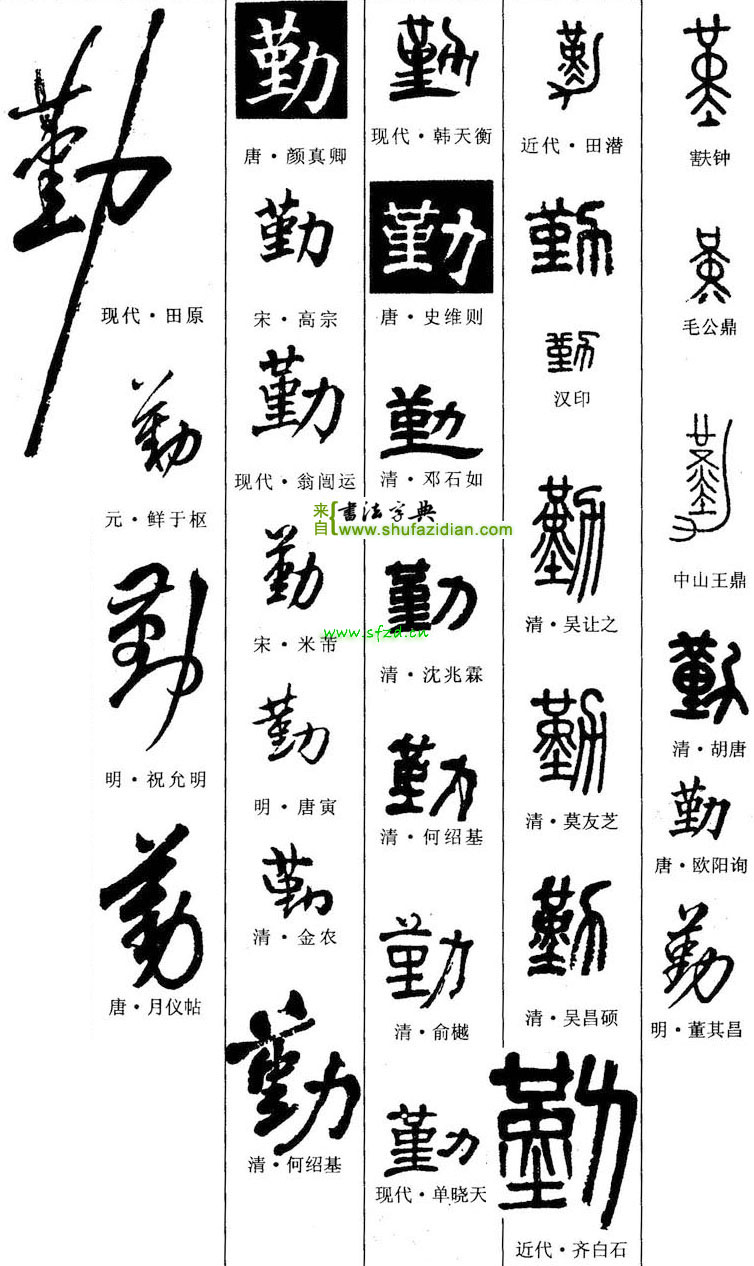 勤
现代·田原
勤
元·鲜于枢
勤
明·祝允明
勤
唐·月仪帖
勤
唐·颜真卿
勤
宋·高宗
勤
现代·翁闿运
勤
宋·米芾
勤
明·唐寅
勤
清·金农
勤
清·何绍基
勤
现代·韩天衡
勤
唐·史维则
勤
清·邓石如
来自
書法字典
www.shufazidian.com
勤
www.sfzd.cn
清·沈兆霖
勤
清·何绍基
勤
清·俞樾
勤
现代·单晓天
勤
近代·田潜
勤
勤
汉印
勤
清·吴让之
勤
清·莫友芝
勤
清·吴昌硕
勤
近代·齐白石
堇
㝬钟
堇
毛公鼎
勤
中山王鼎
勤
清·胡唐
勤
唐·欧阳询
勤
明·董其昌